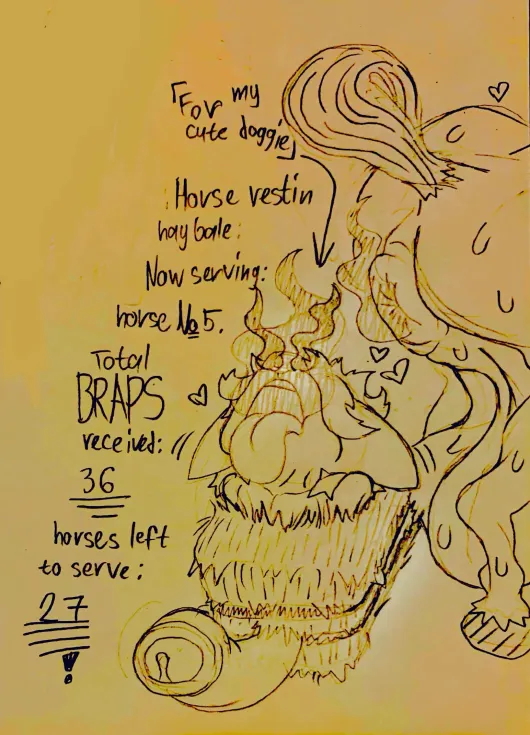 「For my
cute doggie」
Horse restin
hay bale:
Now serving:
horse № 5.
Total
BRAPS
received:
36
horses left
to serve:
27
!